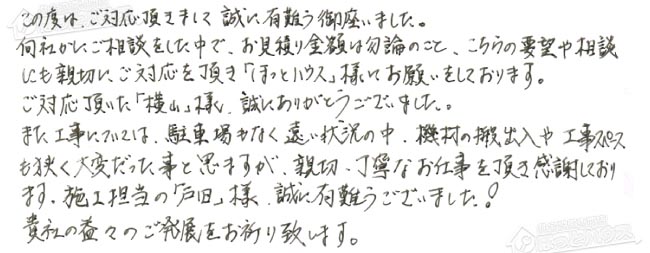 この度は、ご対応頂きまして誠に有難う御座いました。
何社かにご相談をした中で、お見積り金額は勿論のこと、こちらの要望や相談
にも親切に、ご対応を頂き「ほっとハウス」様にてお願いをしております。
ご対応頂いた「横山」様、誠にありがとうございました。
また工事については、駐車場もなく遠い状況の中、機材の搬出入や工事スペース
も狭く大変だった事と思いますが、親切、丁寧なお仕事を頂き感謝しており
ます。施工担当の「戸田」様、誠に有難うございました！
貴社の益々のご発展をお祈り致します。